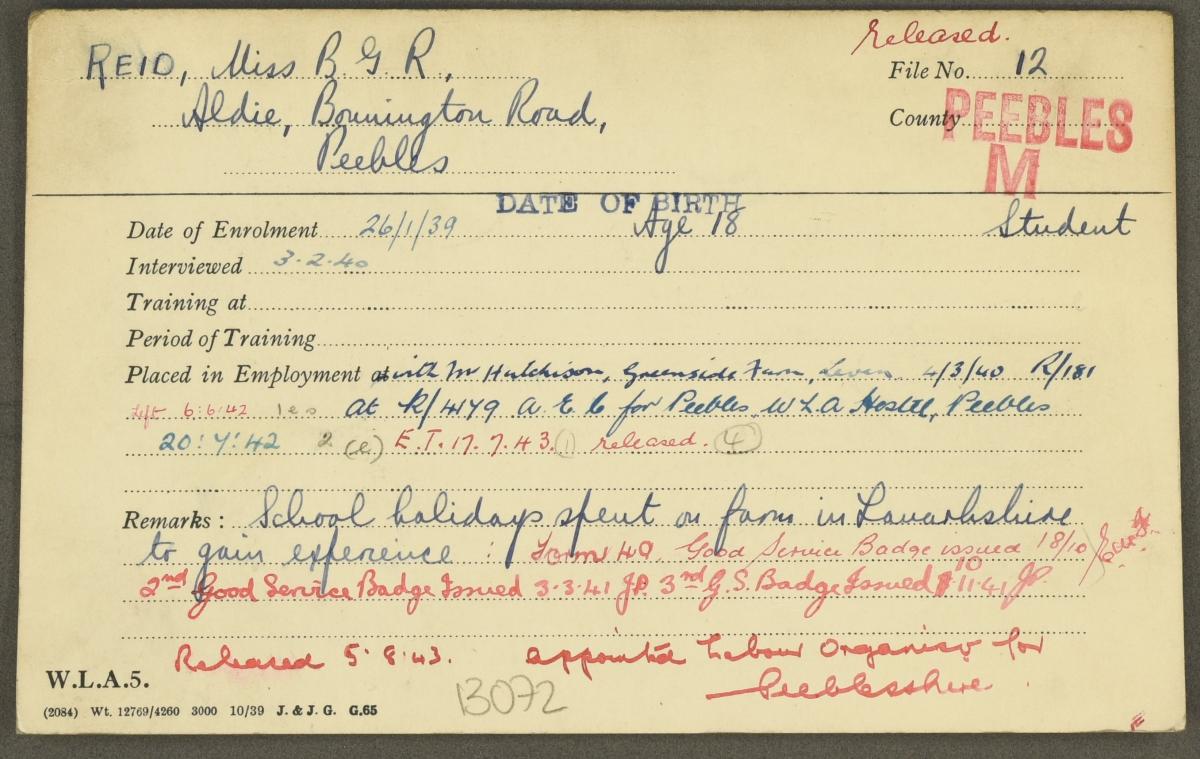 Released.
REID, Miss B. G. R.,
File No. 12
Aldie, Bonnington Road,
County PEEBLES
Peebles
M
DATE OF BIRTH
Date of Enrolment 26/1/39 Age 18 Student
Interviewed 3.2.40
Training at
Period of Training
Placed in Employment at with Mr Hutchison, Greenside Farm, Leven 4/3/40 R/181
Left 6.6.42 at R/4179 A.E.C for Peebles. W L A Hostel, Peebles
20:7:42 2 (e) E.T. 17.7.43. (1) released. (4)
Remarks : School holidays spent on farm in Lanarkshire
to gain experience : Form 49. Good Service Badge issued 18/10
2nd Good Service Badge Issued 3.3.41 JP. 3rd G.S. Badge Issued 10 11.41 JP
Released 5.8.43. appointed Labour Organiser for
Peeblesshire
W.L.A.5.
13072
(2084) Wt. 12769/4260 3000 10/39 J. & J. G. G.65